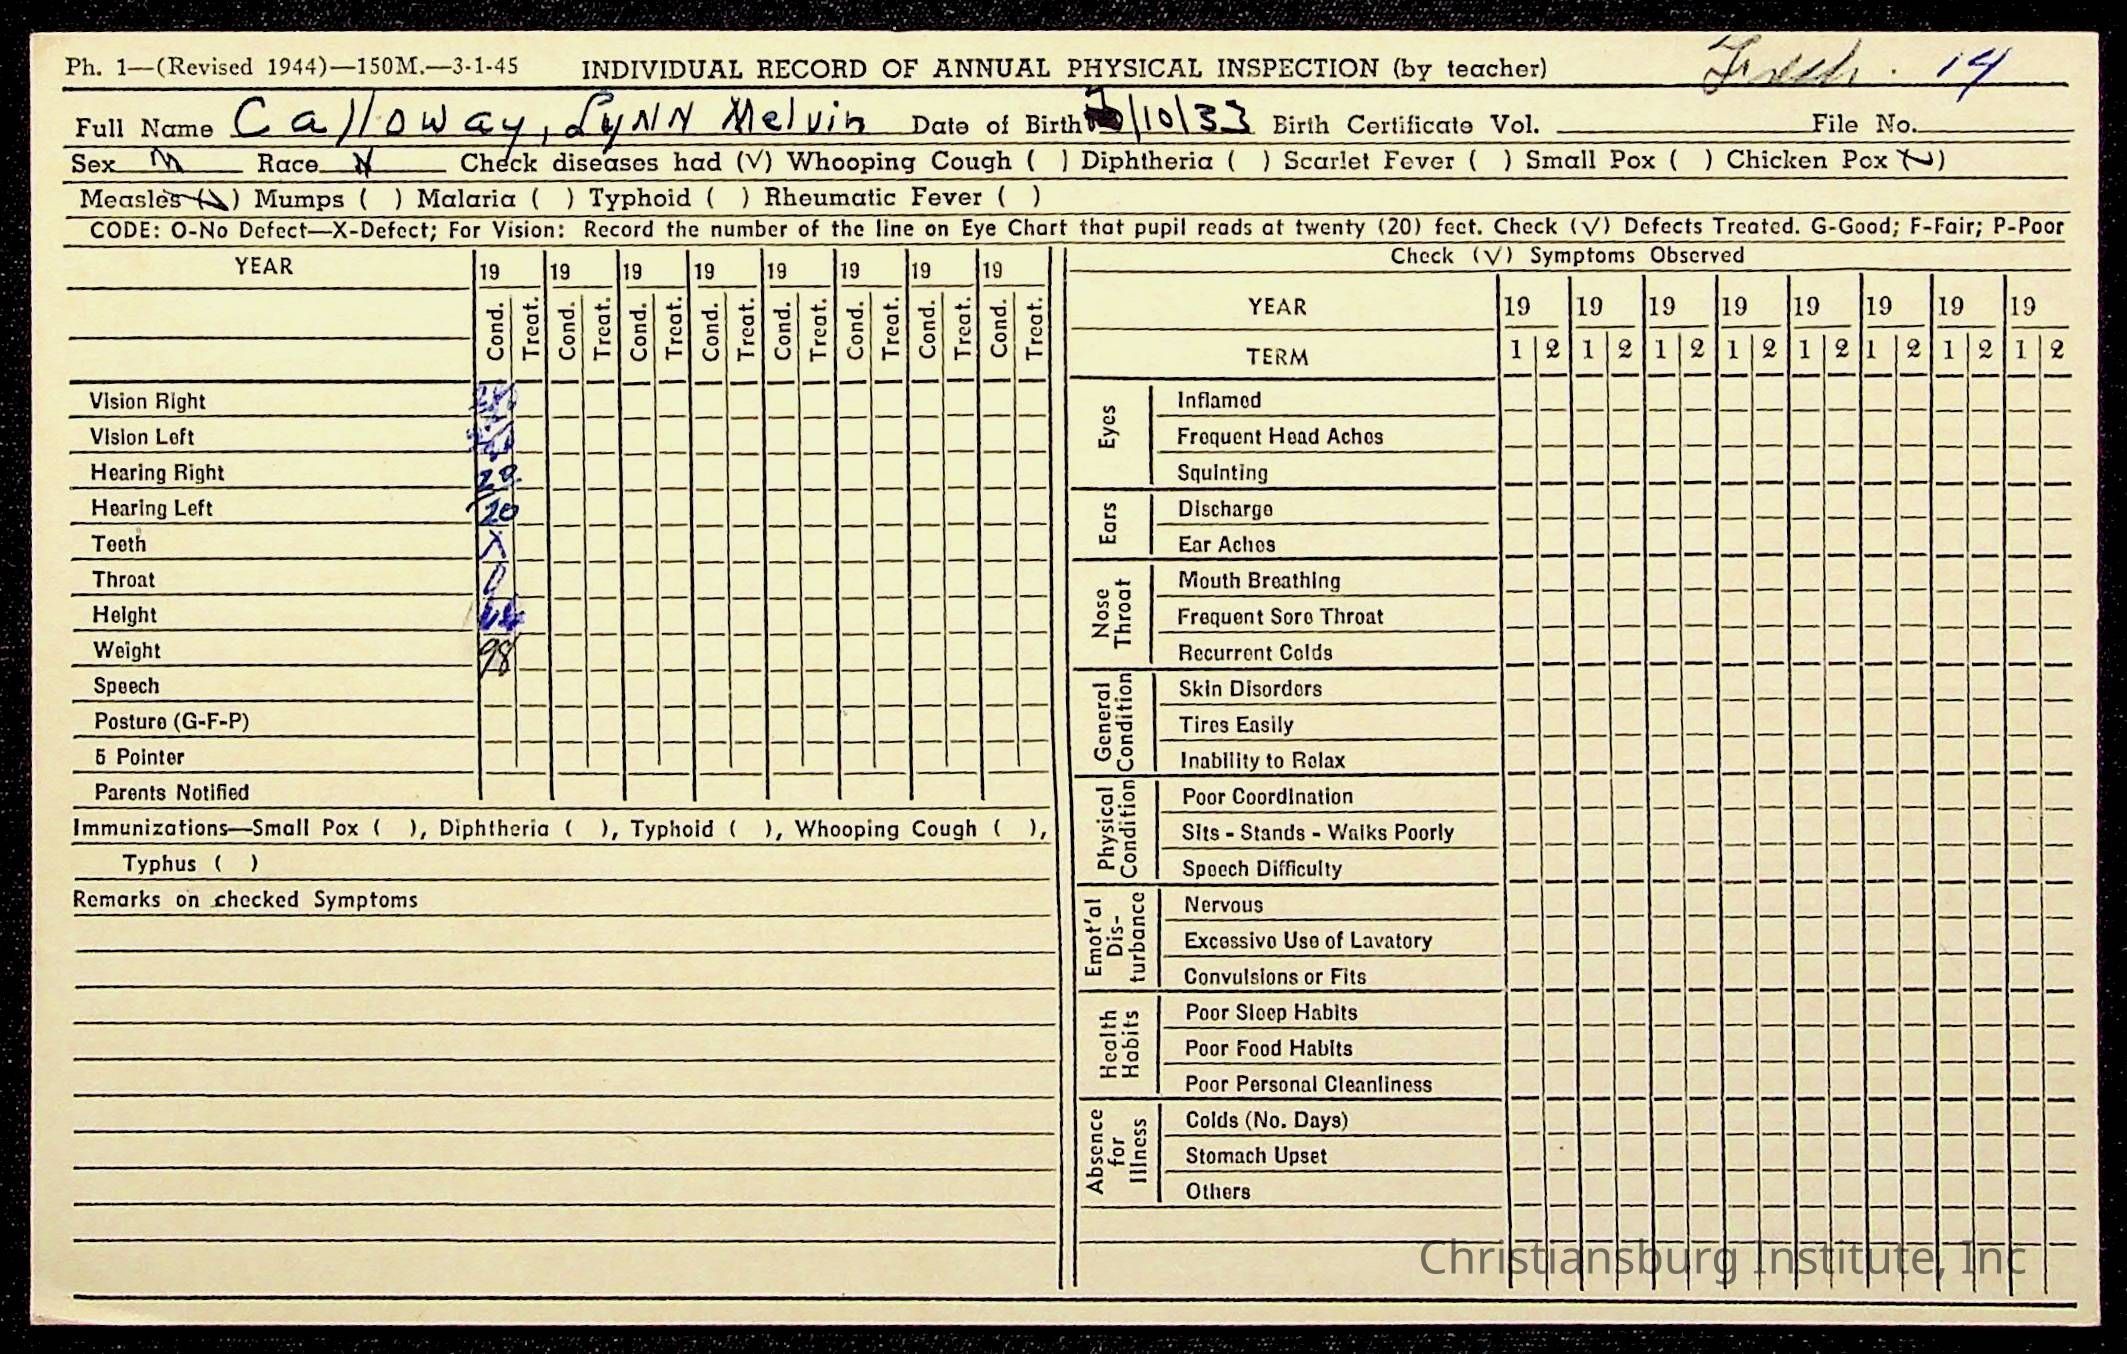 Ph. 1—(Revised 1944)—150M.—3-1-45 INDIVIDUAL RECORD OF ANNUAL PHYSICAL INSPECTION (by teacher) 14
Full Name Calloway, Lynn Melvin Date of Birth /10/33 Birth Certificate Vol. File No.
Sex M Race N Check diseases had (√) Whooping Cough ( ) Diphtheria ( ) Scarlet Fever ( ) Small Pox ( ) Chicken Pox (√)
Measles (√) Mumps ( ) Malaria ( ) Typhoid ( ) Rheumatic Fever ( )
CODE: O-No Defect—X-Defect; For Vision: Record the number of the line on Eye Chart that pupil reads at twenty (20) feet. Check (√) Defects Treated. G-Good; F-Fair; P-Poor
YEAR 19 19 19 19 19 19 19 19
Cond. Treat. Cond. Treat. Cond. Treat. Cond. Treat. Cond. Treat. Cond. Treat. Cond. Treat. Cond. Treat.
Vision Right
Vision Left
Hearing Right
Hearing Left 20
Teeth X
Throat 0
Height
Weight 98
Speech
Posture (G-F-P)
5 Pointer
Parents Notified
Immunizations—Small Pox ( ), Diphtheria ( ), Typhoid ( ), Whooping Cough ( ),
Typhus ( )
Remarks on checked Symptoms
Check (√) Symptoms Observed
YEAR 19 19 19 19 19 19 19 19
TERM 1 2 1 2 1 2 1 2 1 2 1 2 1 2 1 2
Eyes
Inflamed
Frequent Head Aches
Squinting
Ears
Discharge
Ear Aches
Nose
Throat
Mouth Breathing
Frequent Sore Throat
Recurrent Colds
General
Condition
Skin Disorders
Tires Easily
Inability to Relax
Physical
Condition
Poor Coordination
Sits - Stands - Walks Poorly
Speech Difficulty
Emot'al
Dis-
turbance
Nervous
Excessive Use of Lavatory
Convulsions or Fits
Health
Habits
Poor Sleep Habits
Poor Food Habits
Poor Personal Cleanliness
Absence
for
Illness
Colds (No. Days)
Stomach Upset
Others
Christiansburg Institute, Inc